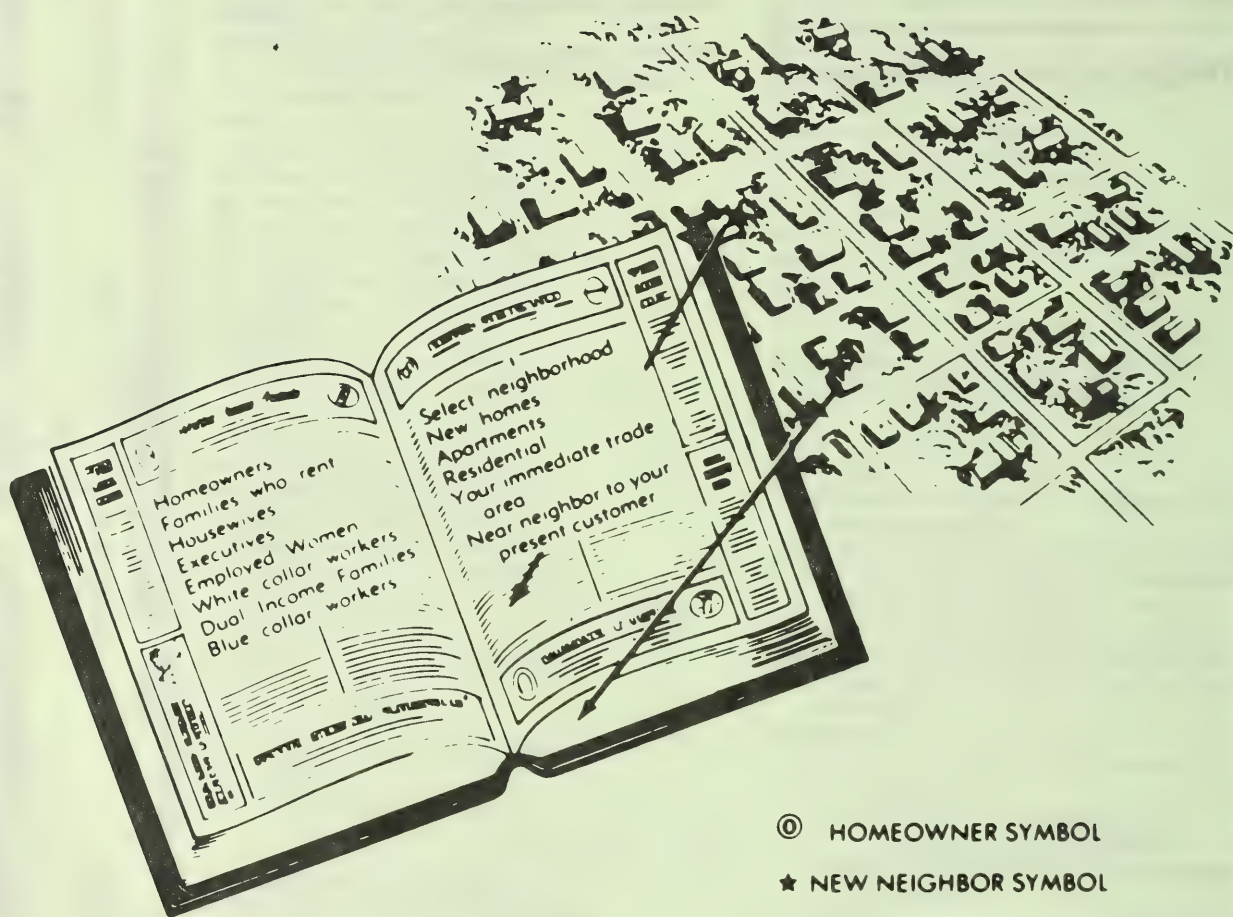 Homeowners
Families who rent
Housewives
Executives
Employed Women
White collar workers
Dual Income Families
Blue collar workers
Select neighborhood
New homes
Apartments
Residential
Your immediate trade
area
Near neighbor to your
present customer
HOMEOWNER SYMBOL
★ NEW NEIGHBOR SYMBOL